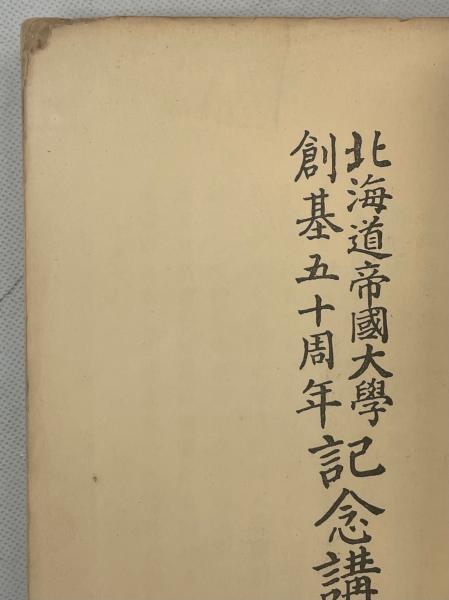 北海道帝國大學
創基五十周年
記念講